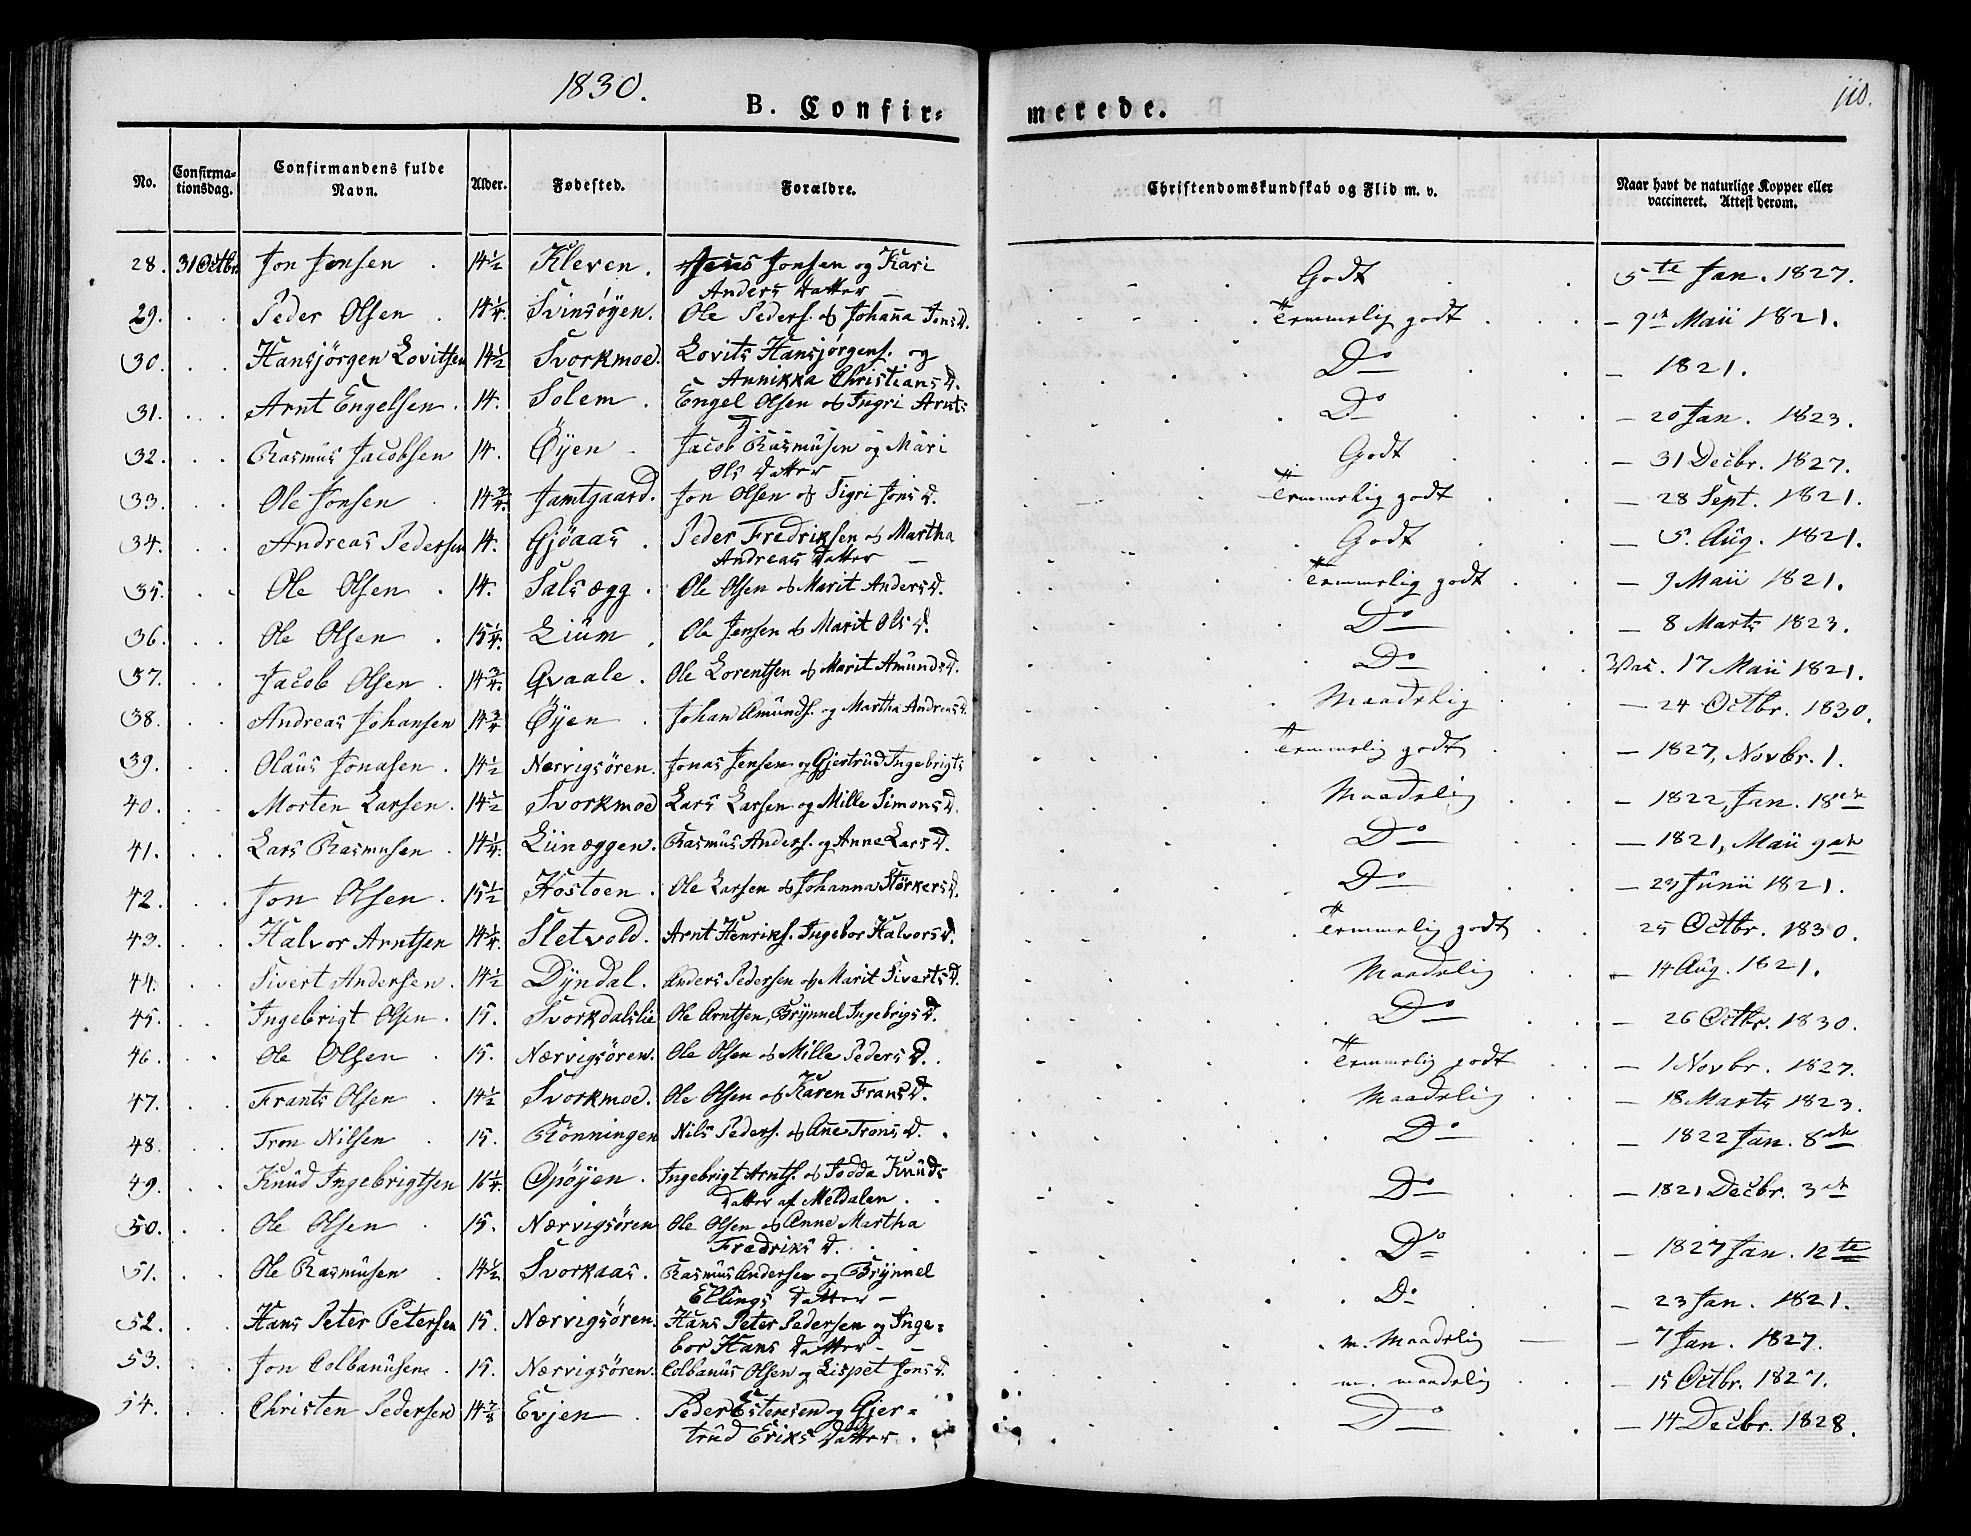 1830.
B. Confir= merede.
110.
No. Confirma-tionsdag. Confirmandens fulde Navn. Alder. Fødested. Forældre. Christendomskundskab og Flid m. v. Naar havt de naturlige Kopper eller vaccineret. Attest derom.
28. 31 Octbr. Jon Jonsen . 14½ Kleven . Jens Jonsen og Kari Godt 5te Jan. 1827.
Anders Datter –
29. Peder Olsen . 14¼ Svinsöyen. Ole Peders. og Johana Jons D. Temmelig godt – 9de Maii 1821.
30. Hansjörgen Lovitsen 14½ Svorkmoe. Lovits Hansjörgens. og Do – 1821.
Annikka Christians D.
31. Arnt Engelsen . 14. Solem . Engel Olsen og Ingri Arnts Do – 20 Jan. 1823.
D.
32. Rasmus Jacobsen 14. Öyen . Jacob Rasmusen og Mari Godt – 31 Decbr. 1827.
Ols Datter
33. Ole Jonsen 14¾ Jamtgaard. Jon Olsen og Sigri Jons D. Temmelig godt – 28 Sept. 1821.
34. Andreas Pedersen 14. Gjöaas . Peder Fredriksen og Martha Godt – 5. Aug. 1821.
Andreas Datter –
35. Ole Olsen . 14. Salsægg . Ole Olsen og Marit Anders D. Temmelig godt – 9 Maii 1821.
36. Ole Olsen . 15¼ Lium . Ole Jensen og Marit Ols D. Do – 8 Marts 1823.
37. Jacob Olsen . 14¾ Qvaale . Ole Lorentsen og Marit Amunds D. Do Vac. 17 Maii 1821.
38. Andreas Johansen 14¾ Öyen . Johan Amunds. og Martha Andreas D. Maadelig – 24 Octbr. 1830.
39. Olaus Jonasen . 14½ Nærvigsören. Jonas Jensen og Gjertrud Ingebrigts Temmelig godt – 1827, Novbr. 1.
40. Morten Larsen . 14½ Svorkmoe Lars Larsen og Mille Simons D. Maadelig – 1822, Jan. 18de
41. Lars Rasmusen . 14¼ Liinæggen. Rasmus Anders. og Anne Lars D. Do – 1821, Maii 9de
42. Jon Olsen . 15½ Hostoen . Ole Larsen og Johanna Störkers D. Do – 23 Junii 1821.
43. Halvor Arntsen 14¼ Sletvold. Arnt Henriks. Ingebor Halvors D. Temmelig godt 25 Octbr. 1830.
44. Sivert Andersen . 14½ Dyndal. Anders Pedersen og Marit Siverts D. Maadelig – 14 Aug. 1821.
45. Ingebrigt Olsen . 15. Svorkdalslie Ole Arntsen, Brynnel Ingebrigs D. Do – 26 Octbr. 1830.
46. Ole Olsen . 15. Nærvigsören. Ole Olsen og Mille Peders D. Temmelig godt – 1 Novbr. 1827.
47. Frants Olsen . 14½ Svorkmoe. Ole Olsen og Karen Frans D. Maadelig – 18 Marts 1823.
48. Tron Nilsen . 15. Rönningen Nils Peders. og Ane Trons D. Do – 1822 Jan. 8de
49. Knud Ingebrigtsen 16¼ Opöyen . Ingebrigt Arnts. og Todda Knuds Do – 1821 Decbr. 3de
Datter af Meldalen .
50. Ole Olsen . 15. Nærvigsören Ole Olsen og Anne Martha Do – 1827 Jan. 12te
Fredriks D.
51. Ole Rasmusen . 14½ Svorkaas . Rasmus Andersen og Brynnel Do – 23 Jan. 1821.
Ellings Datter –
52. Hans Peter Petersen 15. Nærvigsören. Hans Peter Pedersen og Inge= m. Maadelig – 7 Jan. 1827.
bor Hans Datter –
53. Jon Colbanusen . 15. Nærvigsören. Colbanus Olsen og Lispet Jons D. m. maadelig – 15 Octbr. 1827.
54. Christen Pedersen 14⅞ Evjen . Peder Estensen og Gjer= Do – 14 Decbr. 1828.
trud Eriks Datter .